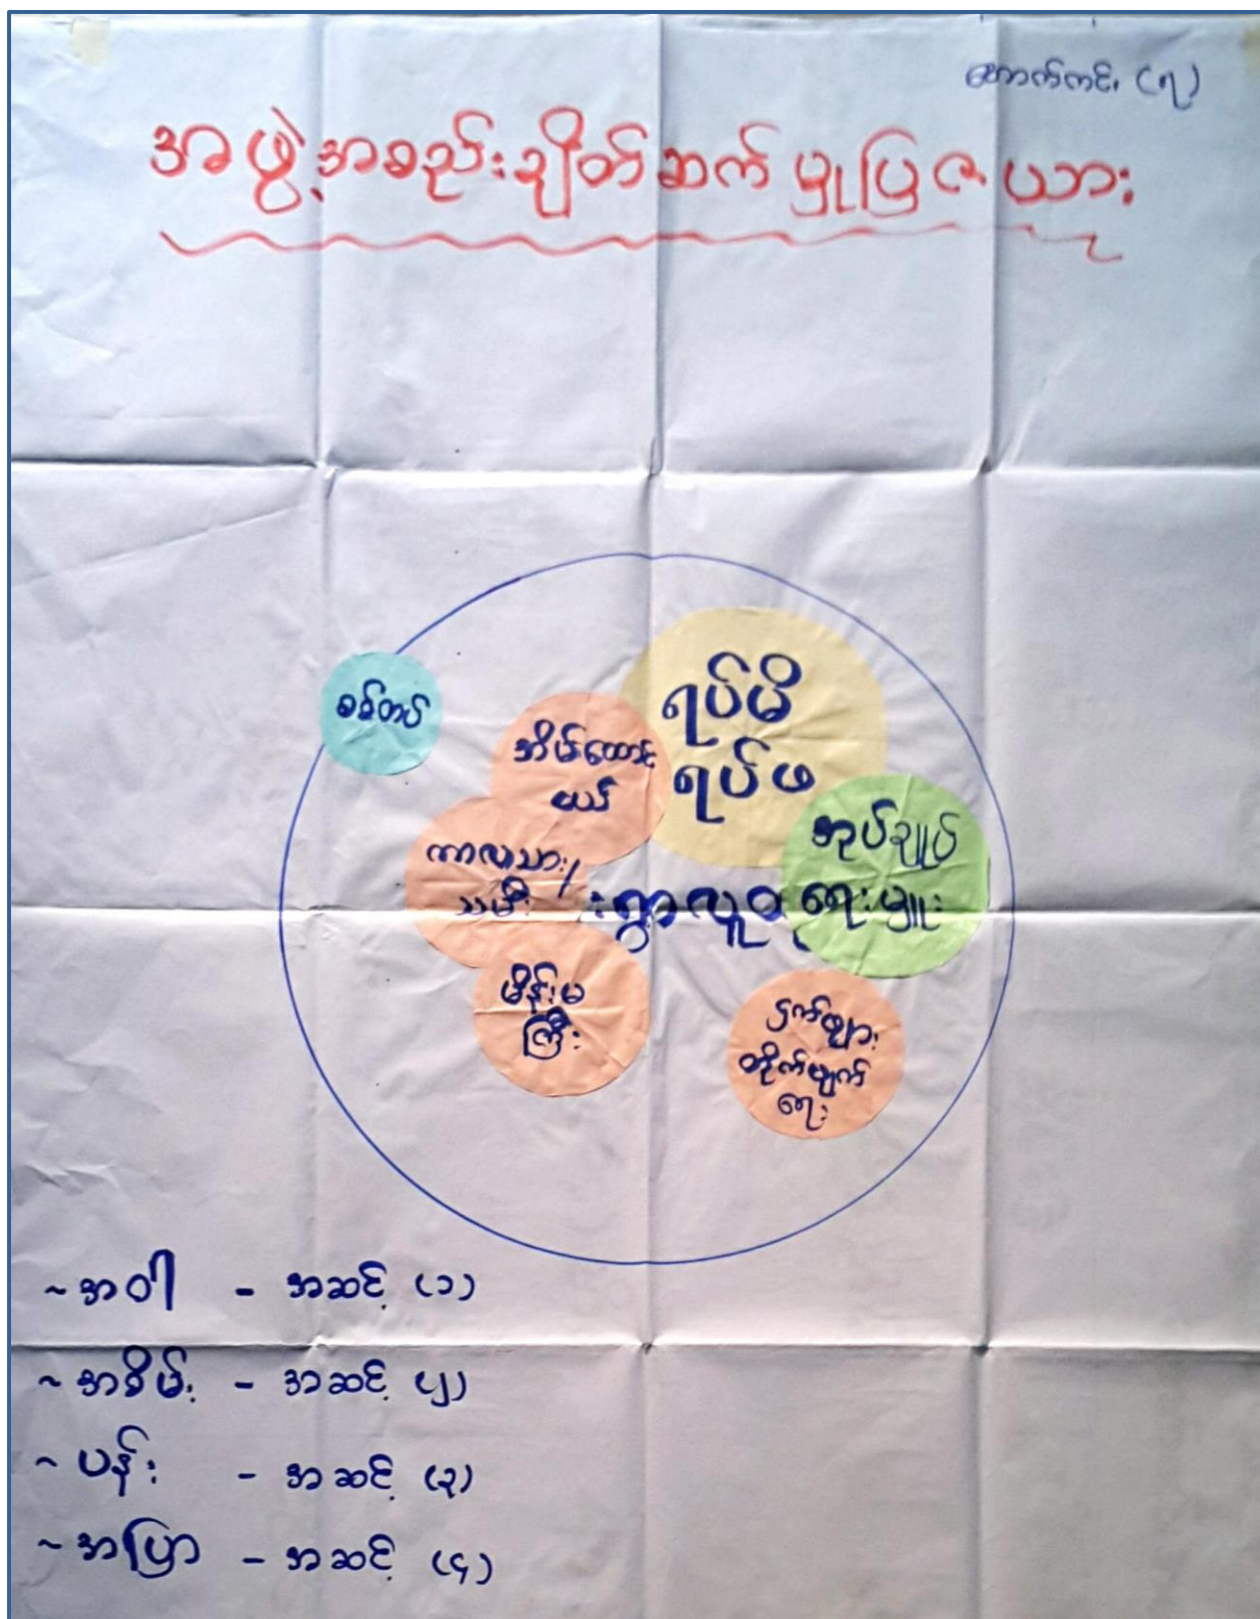 ဆောက်ကင်း (၇)
အဖွဲ့အစည်းချိတ်ဆက်မှုပြဇယား
စစ်တပ်
ရပ်မိ
ရပ်ဖ
အိမ်ထောင်
မယ်
အုပ်ချုပ်
ရေးမှူး
ကာလသား/
သမီး
းရွာလူထု
မိန်းမ
ကြီး
ငှက်ဖျား
တိုက်ဖျက်
ရေး
~အဝါ - အဆင့် (၁)
~အစိမ်း - အဆင့် (၂)
~ပန်း - အဆင့် (၃)
~အပြာ - အဆင့် (၄)